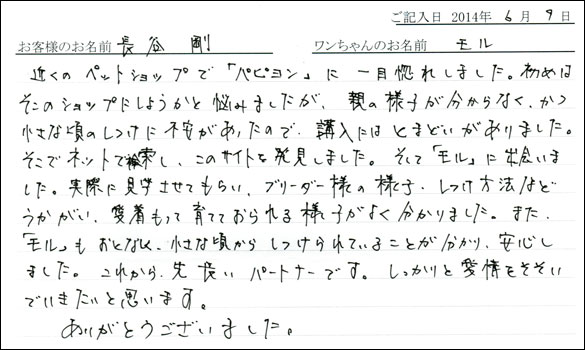 ご記入日 2014年 6月 9日
お客様のお名前 長谷 剛 ワンちゃんのお名前 モル
近くのペットショップで「パピヨン」に一目惚れしました。初めは
そこのショップにしようかと悩みましたが、親の様子が分からなく、かつ
小さな頃のしつけに不安があったので、購入にはとまどいがありました。
そこでネットで検索し、このサイトを発見しました。そして「モル」に出会いま
した。実際に見学させてもらい、ブリーダー様の様子、しつけ方法など
うかがい、愛着もって育てておられる様子がよく分かりました。また、
「モル」もおとなしく、小さな頃からしつけられていることが分かり、安心し
ました。これから先長いパートナーです。しっかりと愛情をそそい
でいきたいと思います。
ありがとうございました。